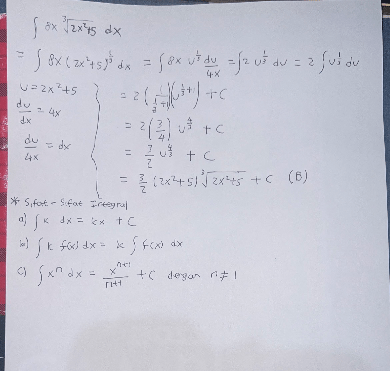 ∫ 8x ∛(2x²+5) dx
= ∫ 8x (2x²+5)^(1/3) dx = ∫ 8x u^(1/3) du/4x = ∫ 2 u^(1/3) du = 2 ∫ u^(1/3) du
u = 2x²+5
du/dx = 4x
du/4x = dx
= 2 (1/(1/3+1) u^(1/3+1)) + C
= 2 (3/4) u^(4/3) + C
= 3/2 u^(4/3) + C
= 3/2 (2x²+5) ∛(2x²+5) + C (B)
* Sifat-Sifat Integral
a) ∫ k dx = kx + C
b) ∫ k f(x) dx = k ∫ f(x) dx
c) ∫ xⁿ dx = x^(n+1)/(n+1) + C dengan n ≠ 1